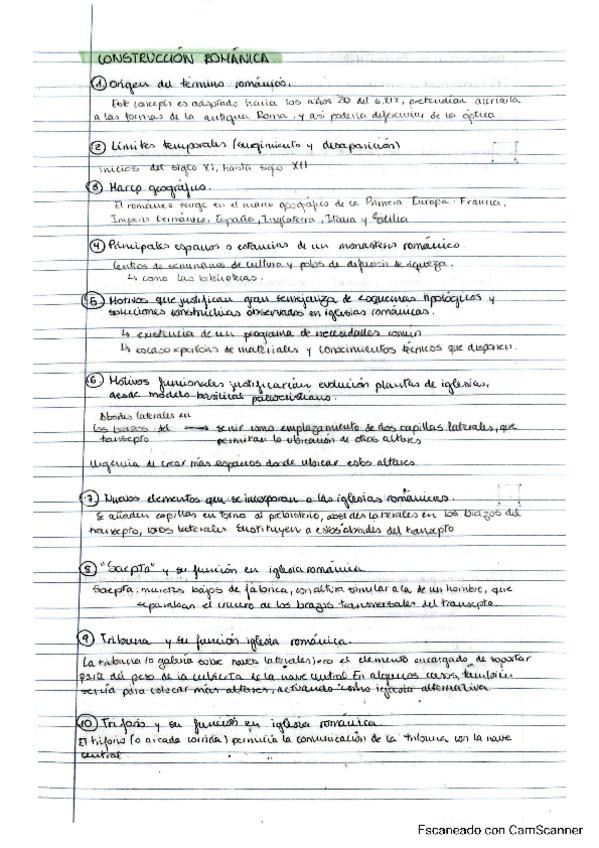 CONSTRUCCIÓN ROMÁNICA
① Origen del término románico.
Este concepto es adoptado hacia los años 20 del s.XIX, pretendían acercarla
a las formas de la antigua Roma, y así poderla diferenciar de la
② Límites temporales (surgimiento y desaparición)
inicios del siglo XI, hasta siglo XII
③ Marco geográfico.
El románico surge en el marco geográfico de la Primera Europa: Francia,
Imperio Germánico, España, Inglaterra, Italia y Sicilia
④ Principales espacios o estancias de un monasterio románico.
Centros de seminarios de cultura y polos de difusión de riqueza.
↳ como las bibliotecas.
⑤ Motivos que justifican gran semejanza de esquemas tipológicos y
soluciones constructivas observados en iglesias románicas.
↳ existencia de un programa de necesidades común
↳ escaso de materiales y conocimientos técnicos que disponen.
⑥ Motivos funcionales justificarían evolución plantas de iglesias,
desde modelo basilical paleocristiano.
Ábsides laterales en
los brazos del → servir como emplazamiento de dos capillas laterales, que
transepto permitían la ubicación de otros altares
Urgencia de crear más espacios donde ubicar estos altares
⑦ Nuevos elementos que se incorporan a las iglesias románicas.
Se añaden capillas en torno al presbiterio, absides laterales en los brazos del
transepto, laterales sustituyen a estos absides del transepto
⑧ "Saepta" y su función en iglesia románica
Saepta, muretes bajos de fábrica, con altura similar a la de un hombre, que
separaban el crucero de los brazos transversales del transepto.
⑨ Tribuna y su función iglesia románica.
La tribuna (o galería sobre naves laterales) era el elemento encargado de soportar
parte del peso de la cubierta de la nave central. En algunos casos, también
servía para colocar más altares, actuando como iglesia alternativa
⑩ Triforio y su función en iglesia románica
El triforio (o arcada corrida) permitía la comunicación de la tribuna con la nave
central
Escaneado con CamScanner